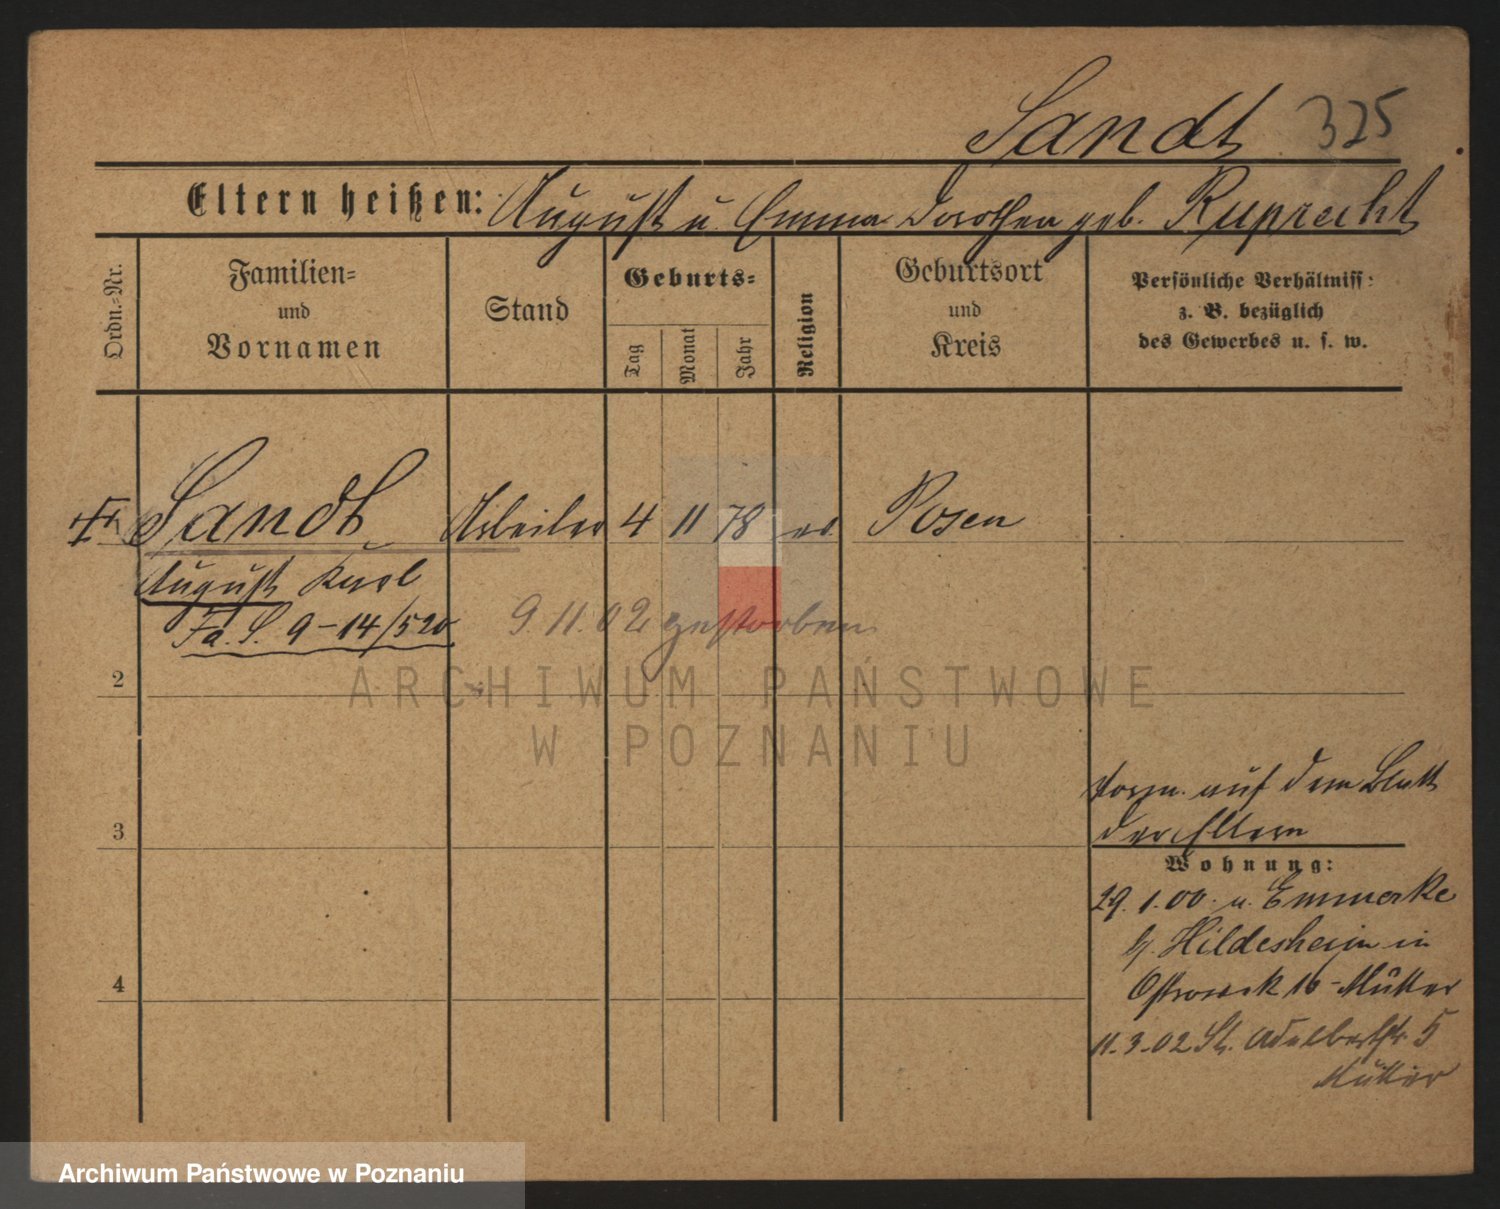 Sandt 325
Eltern heißen: August u. Emma Dorothea geb. Ruprecht
Ordn.=Nr.
Familien=
und
Vornamen
Stand
Geburts=
Tag
Monat
Jahr
Religion
Geburtsort
und
Kreis
Persönliche Verhältniss:
z. B. bezüglich
des Gewerbes u. s. w.
Sandt Arbeiter 4 11 78 ev Posen
August Karl
Fa. S. 9-14/520
9.11.02 gestorben
2
3
4
auf dem Blatt
der Eltern
Wohnung:
29.1.00. n. Emmerke
b. Hildesheim in
Ostrowek 16 - Mutter
11.3.02 St. Adalbertstr. 5
Mutter
ARCHIWUM PAŃSTWOWE
W POZNANIU
Archiwum Państwowe w Poznaniu